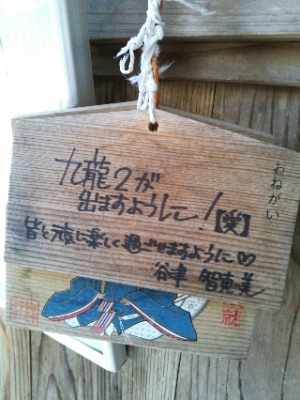 おねがい
九龍2が
出ますように！【愛】
皆と元気に楽しく過ごせますように♡
谷津 智恵美
就